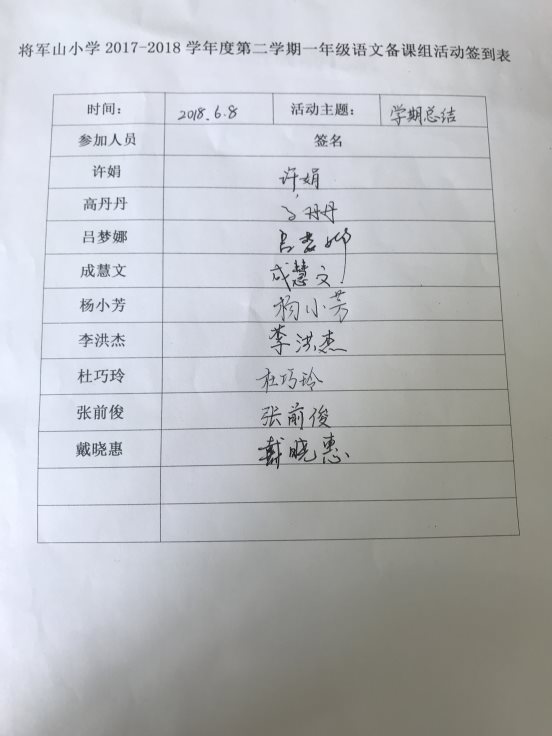 将军山小学2017-2018学年度第二学期一年级语文备课组活动签到表
时间： 2018.6.8 活动主题： 学期总结
参加人员 签名
许娟 许娟
高丹丹 高丹丹
吕梦娜 吕梦娜
成慧文 成慧文
杨小芳 杨小芳
李洪杰 李洪杰
杜巧玲 杜巧玲
张前俊 张前俊
戴晓惠 戴晓惠